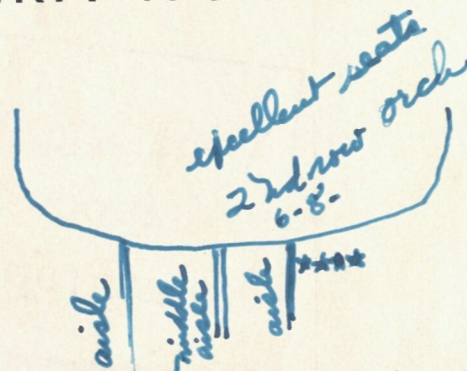 excellent seats
2nd row orch
6-8-
aisle
middle
aisle
aisle
****